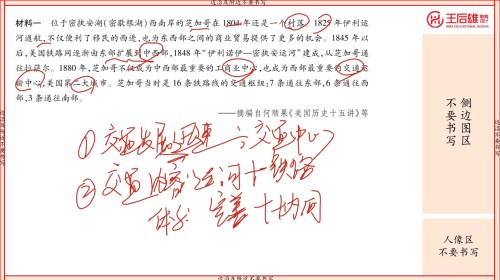 边沿尽量不要书写
王后雄
材料一 位于密执安湖(密歇根湖)西南岸的芝加哥在1804年还是一个村落。1825年伊利运
河通航,不仅便利了移民的西进,也为东西部之间的商业贸易提供了更多的机会。1845年以
后,美国铁路网逐渐由东部扩展到中西部,1848年“伊利诺伊—密执安运河”建成,从芝加哥通
往拉萨尔。1880年,芝加哥不仅成为中西部最重要的工商业中心,也成为西部最重要的交通运
输中心,美国第二大城市。芝加哥当时是16条铁路线的交通枢纽:7条通往东部,6条通往西
部,3条通往南部。
——摘编自何顺果《美国历史十五讲》等
①交通发展
交通中心
②交通
运河+铁路
体系 完善+协同
侧边图区
不要书写
人像区
不要书写